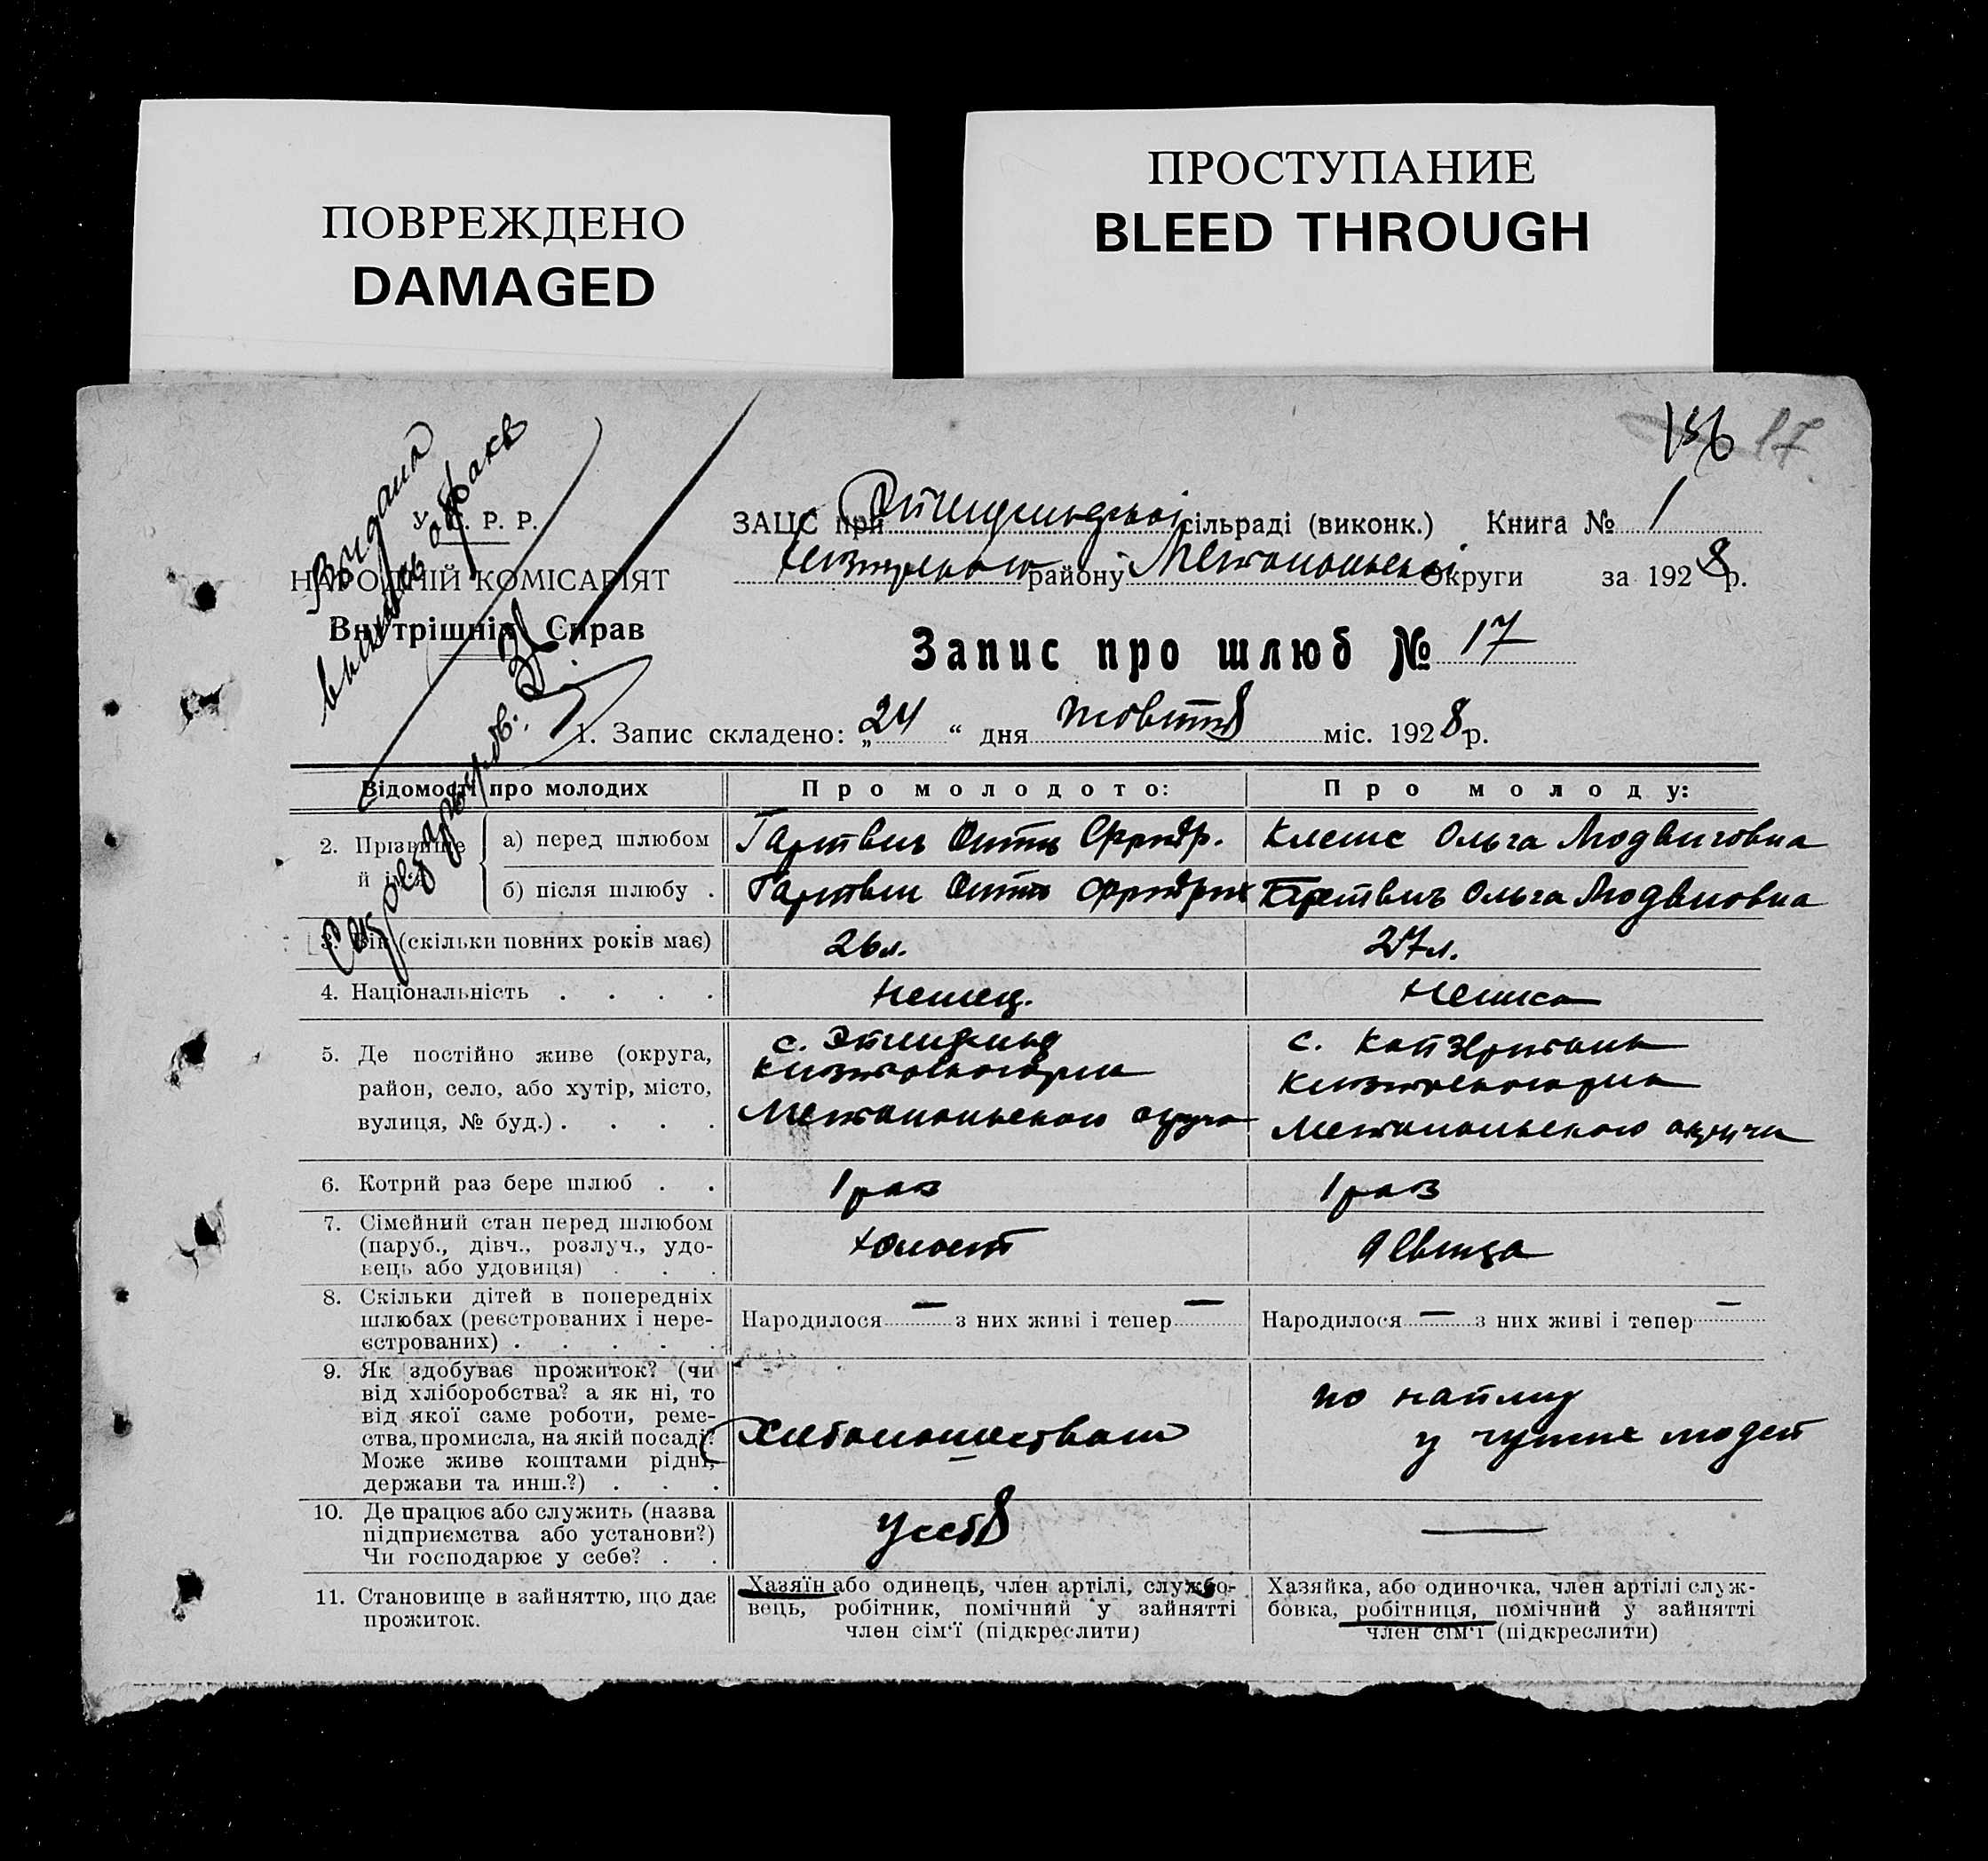 ПОВРЕЖДЕНО
DAMAGED
ПРОСТУПАНИЕ
BLEED THROUGH
156 17
Видана
У. С. Р. Р.
НАРОДНІЙ КОМІСАРІЯТ
Внутрішніх Справ
ЗАЦС при сільраді (виконк.) Книга № 1
району Округи за 1928 р.
Запис про шлюб № 17
1. Запис складено: „24“ дня міс. 1928 р.
Відомості про молодих
Про молодого:
Про молоду:
2. Прізвище й ім'я
а) перед шлюбом
Гартвиг Отто Фридр.
Клемс Ольга Людвиговна
б) після шлюбу .
Гартвиг Отто Фридрих
Гартвиг Ольга Людвиговна
3. Вік (скільки повних років має)
26 л.
27 л.
4. Національність . . . .
Немец.
Немка
5. Де постійно живе (округа,
район, село, або хутір, місто,
вулиця, № буд.) . . . .
с.
Мелитопольского округа
с.
Мелитопольского округа
6. Котрий раз бере шлюб . .
1 раз
1 раз
7. Сімейний стан перед шлюбом
(паруб., дівч., розлуч., удо-
вець або удовиця) . . .
холост
девица
8. Скільки дітей в попередніх
шлюбах (реєстрованих і нере-
єстрованих) . . . . .
Народилося — з них живі і тепер —
Народилося — з них живі і тепер —
9. Як здобуває прожиток? (чи
від хліборобства? а як ні, то
від якої саме роботи, реме-
ства, промисла, на якій посаді?
Може живе коштами рідні,
держави та инш.?) . . .
Хлебопашеством
по найму
у чужих людей
10. Де працює або служить (назва
підприємства або установи?)
Чи господарює у себе? . .
У себя
—
11. Становище в зайняттю, що дає
прожиток.
Хазяїн або одинець, член артілі, службо-
вець, робітник, помічний у зайнятті
член сім'ї (підкреслити)
Хазяйка, або одиночка, член артілі служ-
бовка, робітниця, помічний у зайнятті
член сім'ї (підкреслити)